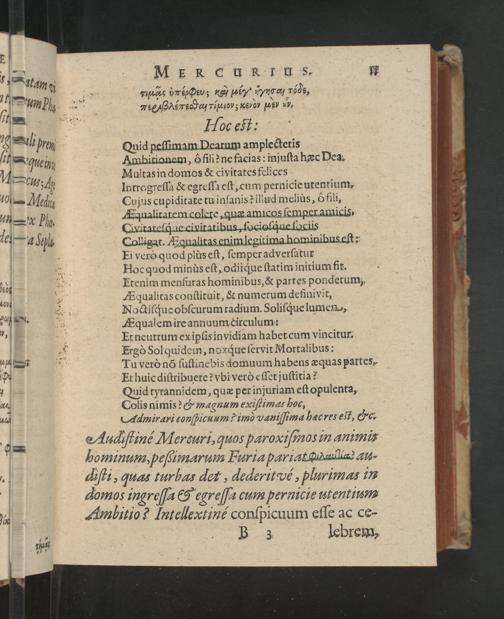 MERCURIUS.
τιμᾷς ὑπέρφευ; καὶ μέγ' ἥγησαι τόδε,
περιβλέπεσθαι τίμιον; κενὸν μὲν οὖν.
Hoc est:
Quid pessimam Dearum amplecteris
Ambitionem, ô fili? ne facias: injusta hæc Dea.
Multas in domos & civitates felices
Introgressa & egressa est, cum pernicie utentium,
Cujus cupiditate tu insanis? illud melius, ô fili,
Æqualitatem colere, quæ amicos semper amicis,
Civitatesque civitatibus, sociosque sociis
Colligat. Æqualitas enim legitima hominibus est:
Ei verò quod plùs est, semper adversatur
Hoc quod minùs est, odiique statim initium fit.
Etenim mensuras hominibus, & partes ponderum,
Æqualitas constituit, & numerum definivit,
Noctisque obscurum radium. Solisque lumen,
Æqualem ire annuum circulum:
Et neutrum ex ipsis invidiam habet cum vincitur.
Ergò Sol quidem, noxque servit Mortalibus:
Tu verò nõ sustinebis domuum habens æquas partes,
Et huic distribuere? vbi verò esset justitia?
Quid tyrannidem, quæ per injuriam est opulenta,
Colis nimis? & magnum existimas hoc,
Admirari conspicuum? imò vanissima hæc res est, &c.
Audistiné Mercuri, quos paroxismos in animis
hominum, peßimarum Furia pariat φιλαυτία? au-
disti, quas turbas det, dederitvé, plurimas in
domos ingressa & egressa cum pernicie utentium
Ambitio? Intellextiné conspicuum esse ac ce-
B 3 lebrem,